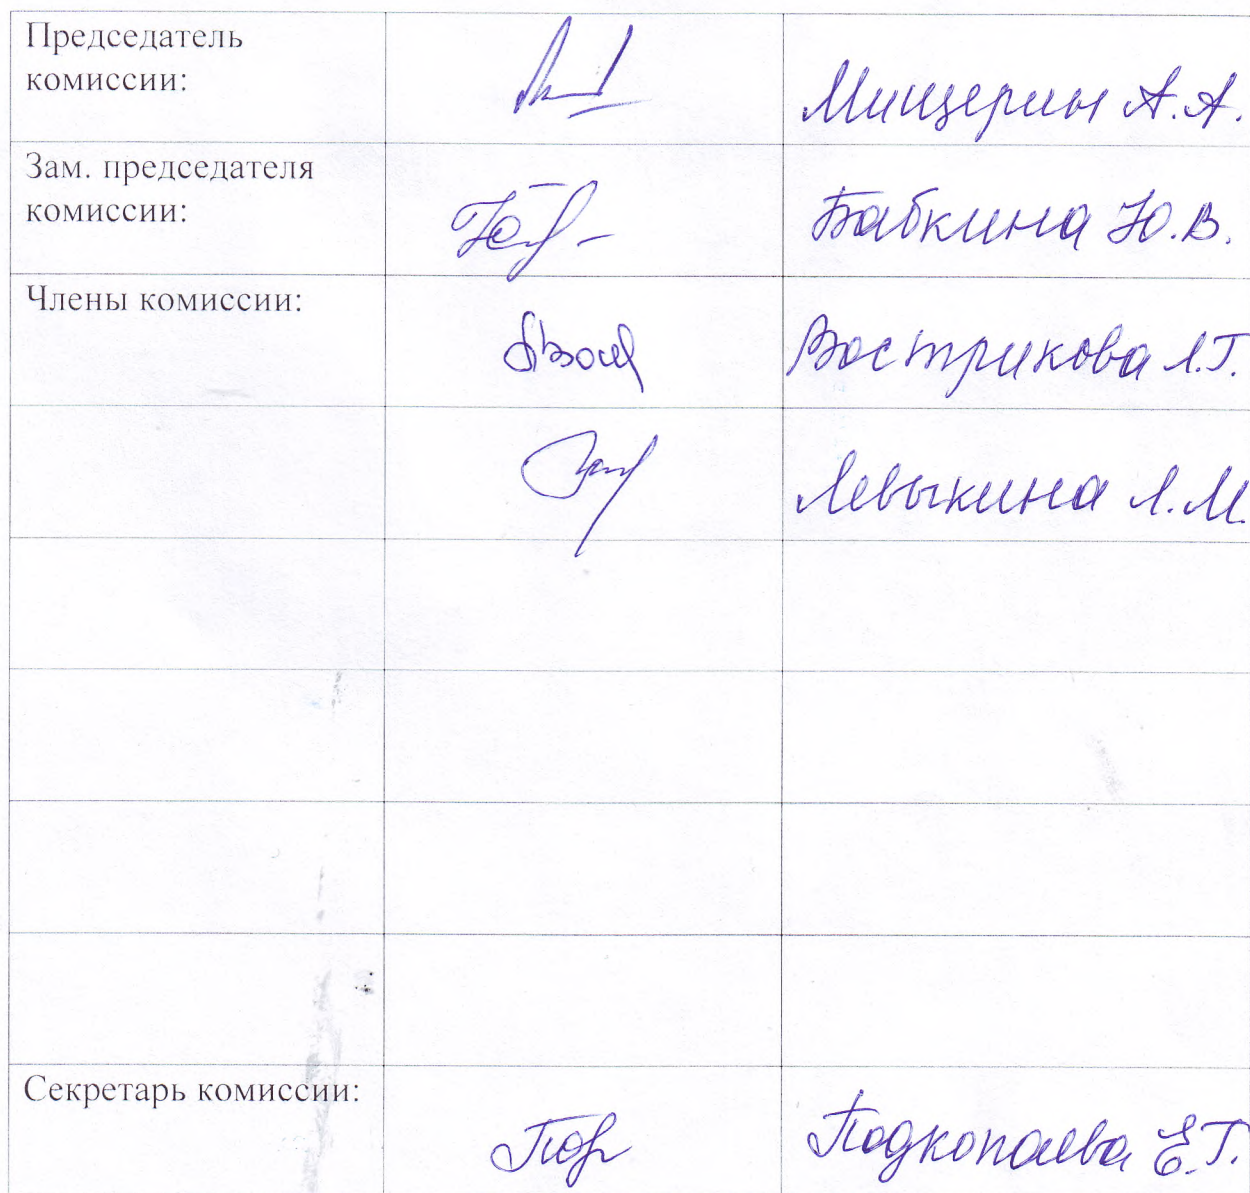 Председатель
комиссии:
Мищерин А.А.
Зам. председателя
комиссии:
Бабкина Ю.В.
Члены комиссии:
Вострикова Л.Г.
Левыкина Л.М.
Секретарь комиссии:
Подкопаева Е.Г.